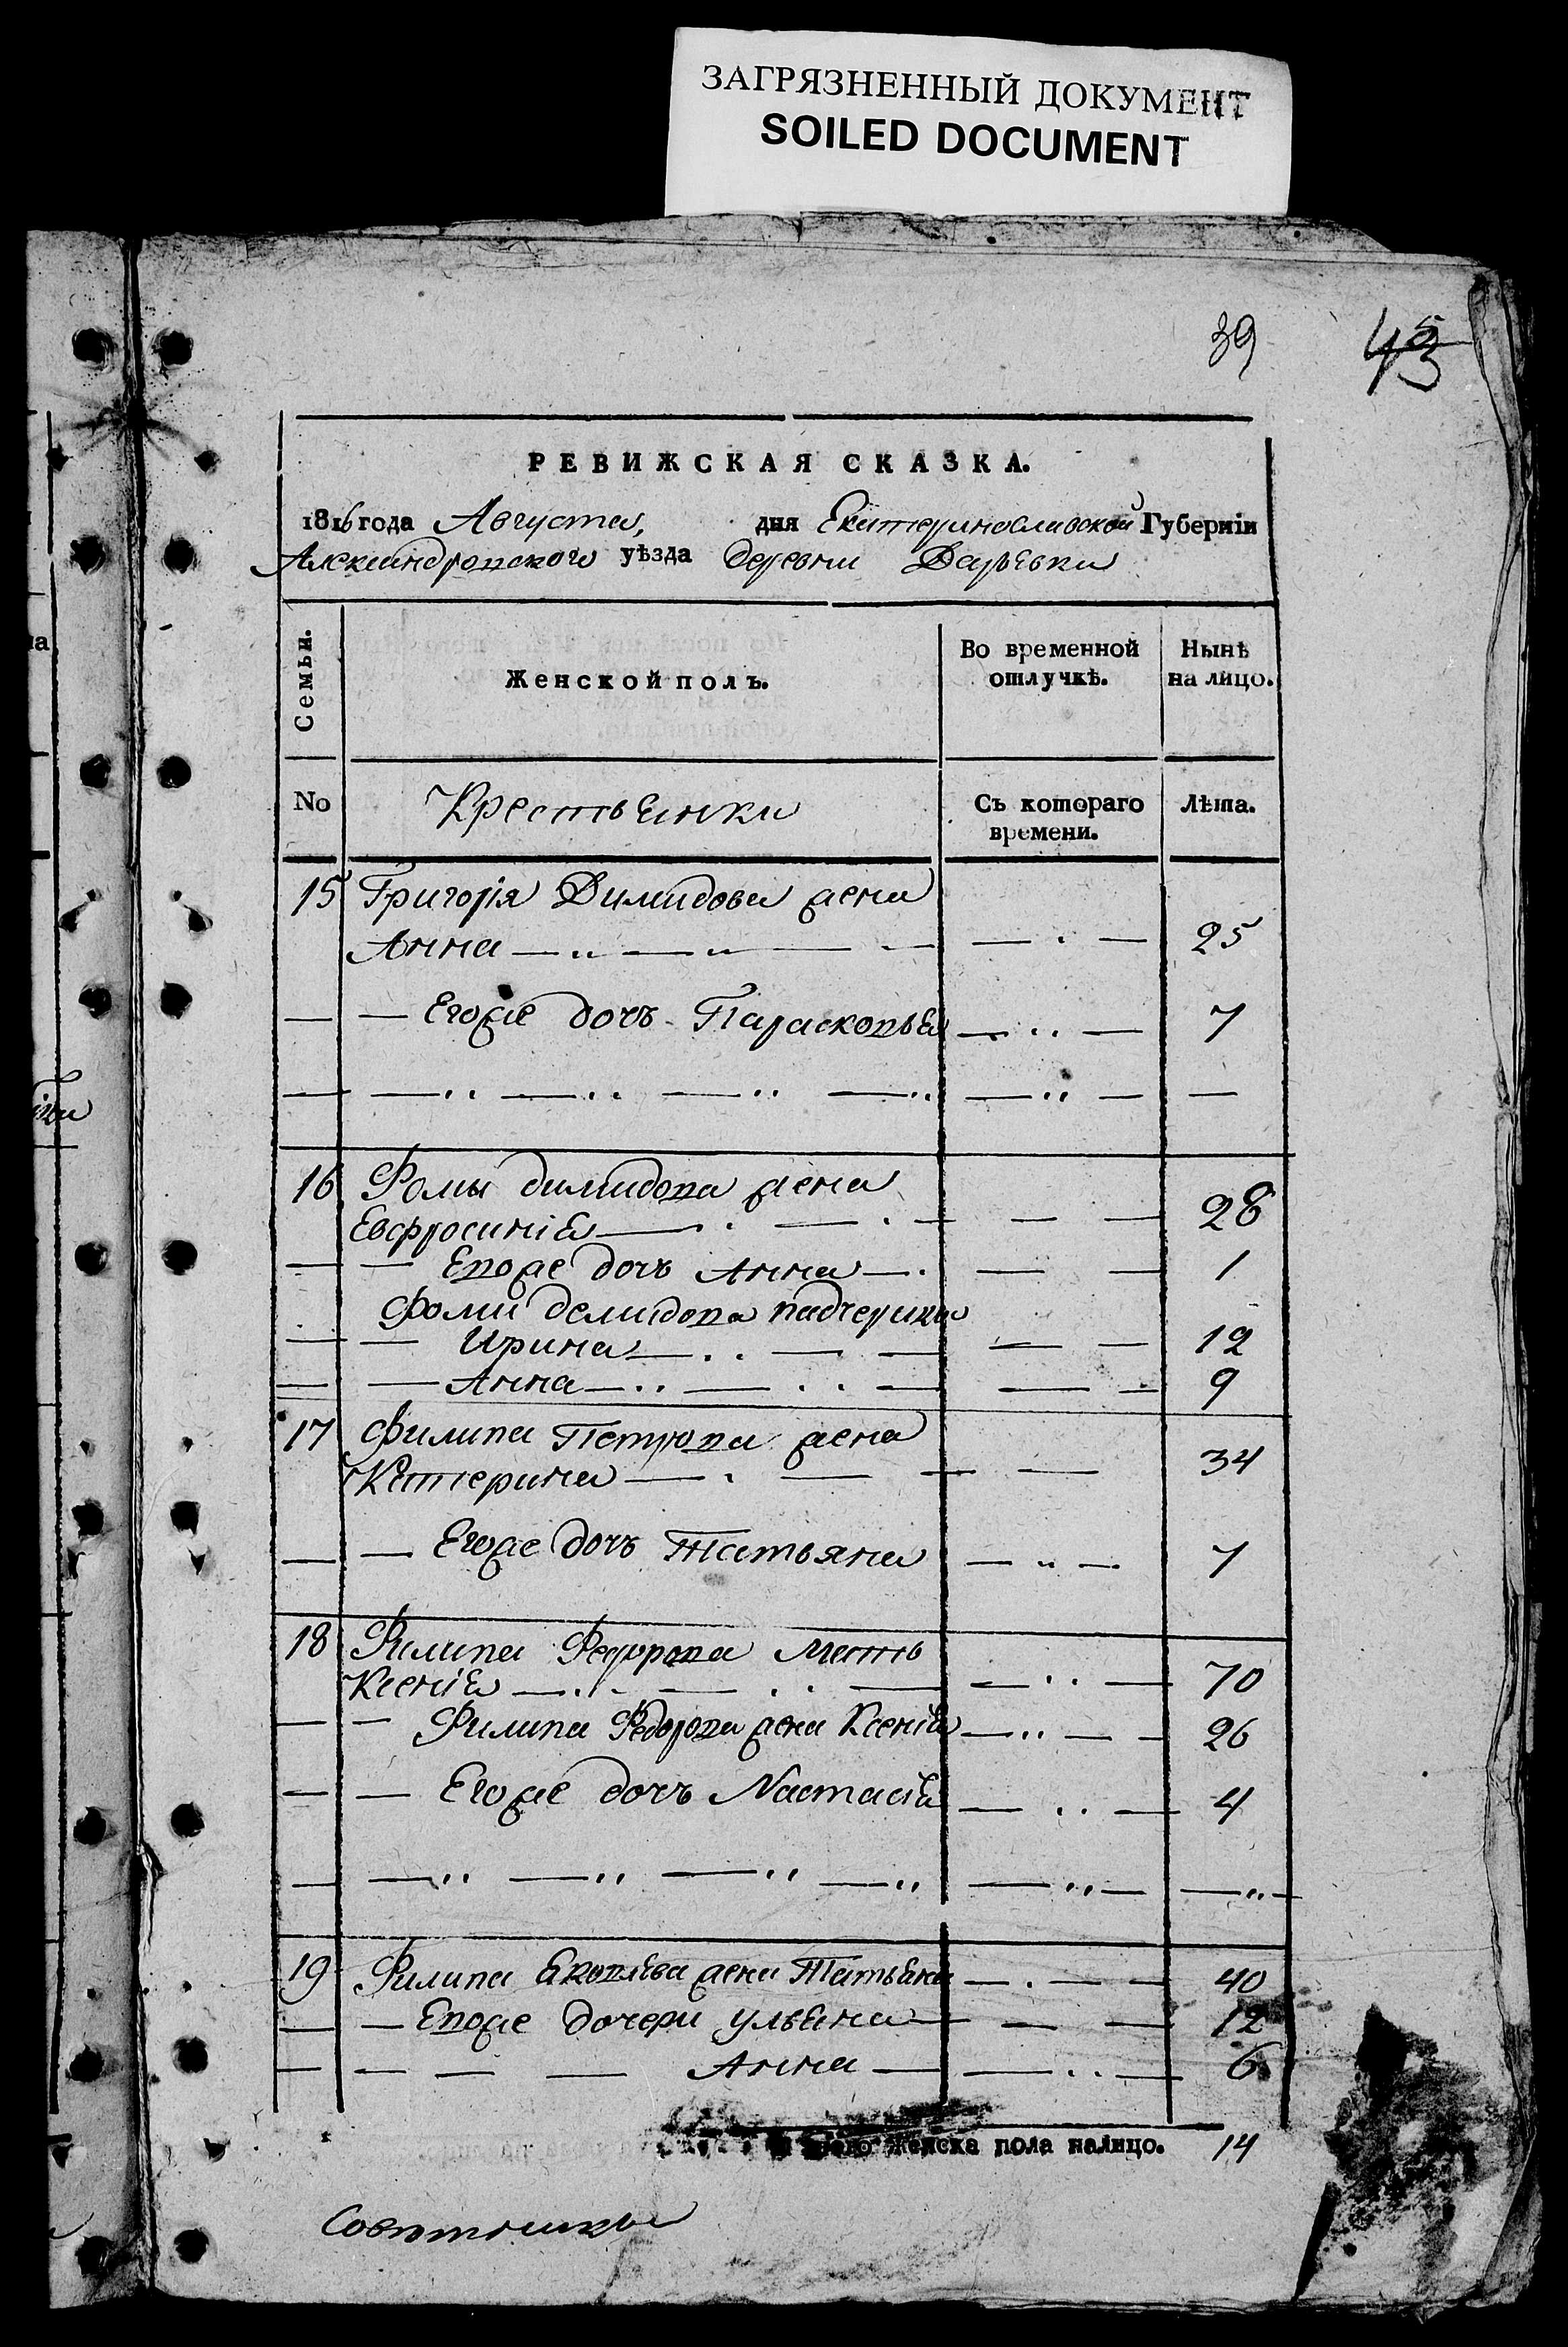 ЗАГРЯЗНЕННЫЙ ДОКУМЕНТ
SOILED DOCUMENT
39 43
РЕВИЖСКАЯ СКАЗКА.
1816 года Августа, дня Екатеринославской Губерніи
Александровского уѣзда деревни Дарьевки
Семьи. Женской полъ. Во временной отлучкѣ. Нынѣ на лицо.
No Крестьянки Съ котораго времени. Лѣта.
15 Григорія Димидова жена
Анна — „ — „ — — — · — 25
— — Егоже дочь Парасковья — ·· — 7
— — ·· — ·· — ·· — ·· — ·· — —
16 Фомы димидова жена
Евфросинія — · — · — — — 28
— — Евоже дочь Анна — · — — 1
Фоми демидова падчерики
— — Ирина — ·· — — — — 12
— — Анна — ·· — ·· — — — 9
17 Филипа Петрова жена
Катерина — · — — — 34
— — Егоже дочь Татьяна — „ — 7
18 Филипа Федорова мать
Ксенія — ·· — ·· — — ·· — 70
— — Филипа Федорова жена Ксенія — ·· — — 26
— — Егоже дочь Настасія — ·· — 4
— — ·· — ·· — ·· — ·· — ·· — — ·· —
19 Филипа Яковлева жена Татьяна — · — — 40
— — Евоже дочери ульяна — — — 12
— — — — Анна — — ·· — 6
женска пола налицо. 14